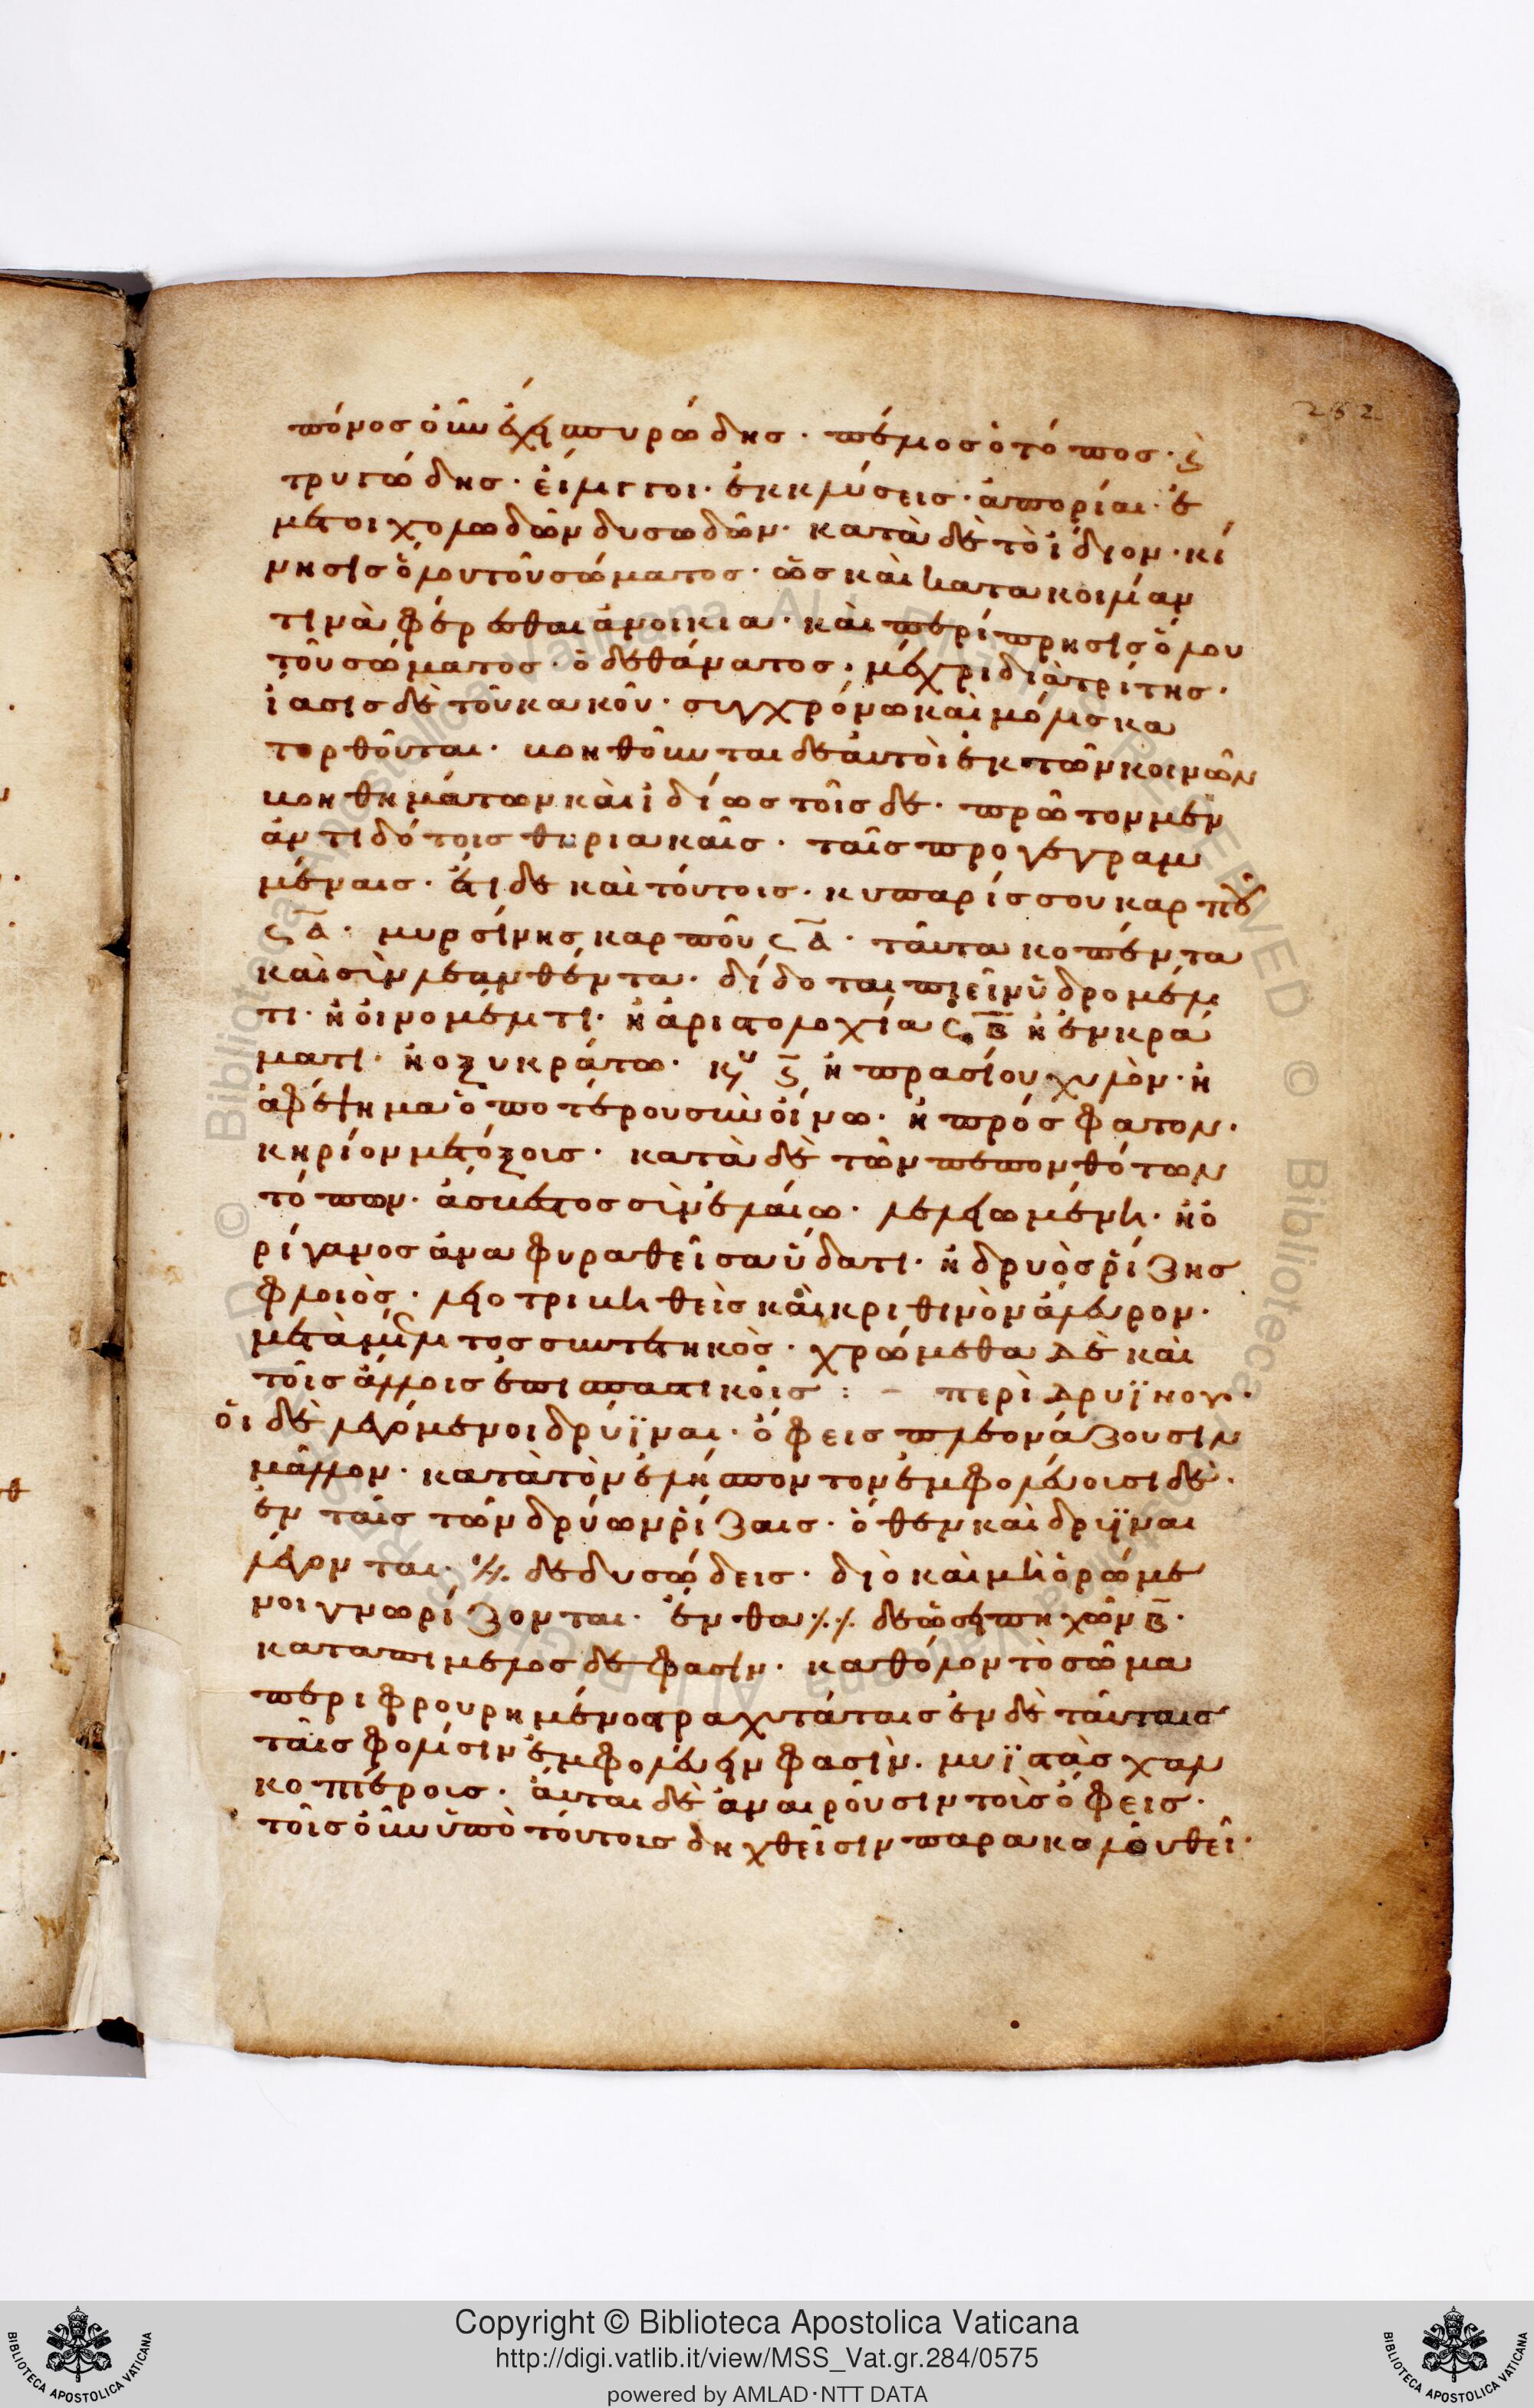 262
πόνος οὖν ἔχει πυρώδης· πέλιος ὁ τόπος· ἢ
τρυγώδης· εἰλιγγοι· ἐκκλύσεις· ἀπορίαι· ἔ
μετοι χολωδῶν δυσωδῶν· κατὰ δὲ τὸ ἴδιον· κί
νησις ὅλου τοῦ σώματος· ὡς καὶ κατα κοιλίαν
τινὰ φέρεσθαι ἀνοικια· καὶ περίπρησις ὅλου
τοῦ σώματος· ὁ δὲ θάνατος· μέχρι διὰτρίτης·
ἴασις δὲ τοῦ κακοῦ· συγχρόνω καὶ μόλις κα
τορθοῦται· βοηθοῦνται δὲ αυτοὶ ἐκ τῶν κοινῶν
βοηθημάτων καὶ ἰδίως τοῖσδε· πρῶτον μὲν
ἀντιδότοις θηριακαῖς· ταῖς προγεγραμ
μέναις· ἔτι δὲ καὶ τούτοις· κυπαρίσσου καρποῦ
𐅻 δ̄· μυρσίνης καρποῦ 𐅻 δ̄· ταῦτα κοπέντα
καὶ σὺν λεανθέντα· δίδοται πιεῖν ὑδρομέλι
τι· ἢ οἰνομέλιτι· ἢ ἀριστολοχία 𐅻 β̄ ἢ ἐν κρά
ματι· ἢ οξυκράτω· κυ ϛ̄ ἢ πρασίου χυλὸν· ἢ
ἀφέψημα ὁποτέρου σὺν οἴνω· ἢ πρόσφατον·
κηρίον μετόξοις· κατὰ δὲ τῶν πεπονθότων
τόπων· ἄσβετος σὺν ἐλαίω· λελειωμένη· ἢ ὀ
ρίγανος ἀναφυραθεῖσα ὕδατι· ἢ δρυὸς ῥίζης
φλοιὸς· λειοτριβηθεὶς καὶ κριθινὸν ἄλευρον·
μετὰ μέλιτος συντετηκὸς· χρώμεθα δὲ καὶ
τοῖς ἄλλοις ἐπισπαστικοῖς : – περὶ δρυΐνου·
οἱ δὲ λεγόμενοι δρύϊναι· ὄφεις πλεονάζουσιν
μᾶλλον· κατὰ τὸν ἐλήσποντον ἐμφολεύουσι δὲ·
ἐν ταῖς τῶν δρύων ῥίζαις· ὅθεν καὶ δρυΐναι
λέγονται· ·/. δὲ δυσώδεις· διὸ καὶ μὴ ὁρώμε
νοι γνωρίζονται· ἔνθα ·/·/. δὲ ὡσεὶ πηχῶν β̄·
καταπιμελος δέ φασίν· καθόλον τὸ σῶμα
περιφρουρημένος τραχυτάταις ἐν δὲ ταύταις
ταῖς φολίσιν ἐμφολεύειν φασὶν· μυΐας τὰς χαλ
κοπτέροις· αὗται δὲ ἀναιροῦσιν τοὺς ὄφεις·
τοῖς οὖν ὑπὸ τούτοις δηχθεῖσιν παρακαλουθεῖ·
Copyright © Biblioteca Apostolica Vaticana
http://digi.vatlib.it/view/MSS_Vat.gr.284/0575
powered by AMLAD·NTT DATA
BIBLIOTECA APOSTOLICA VATICANA
BIBLIOTECA APOSTOLICA VATICANA